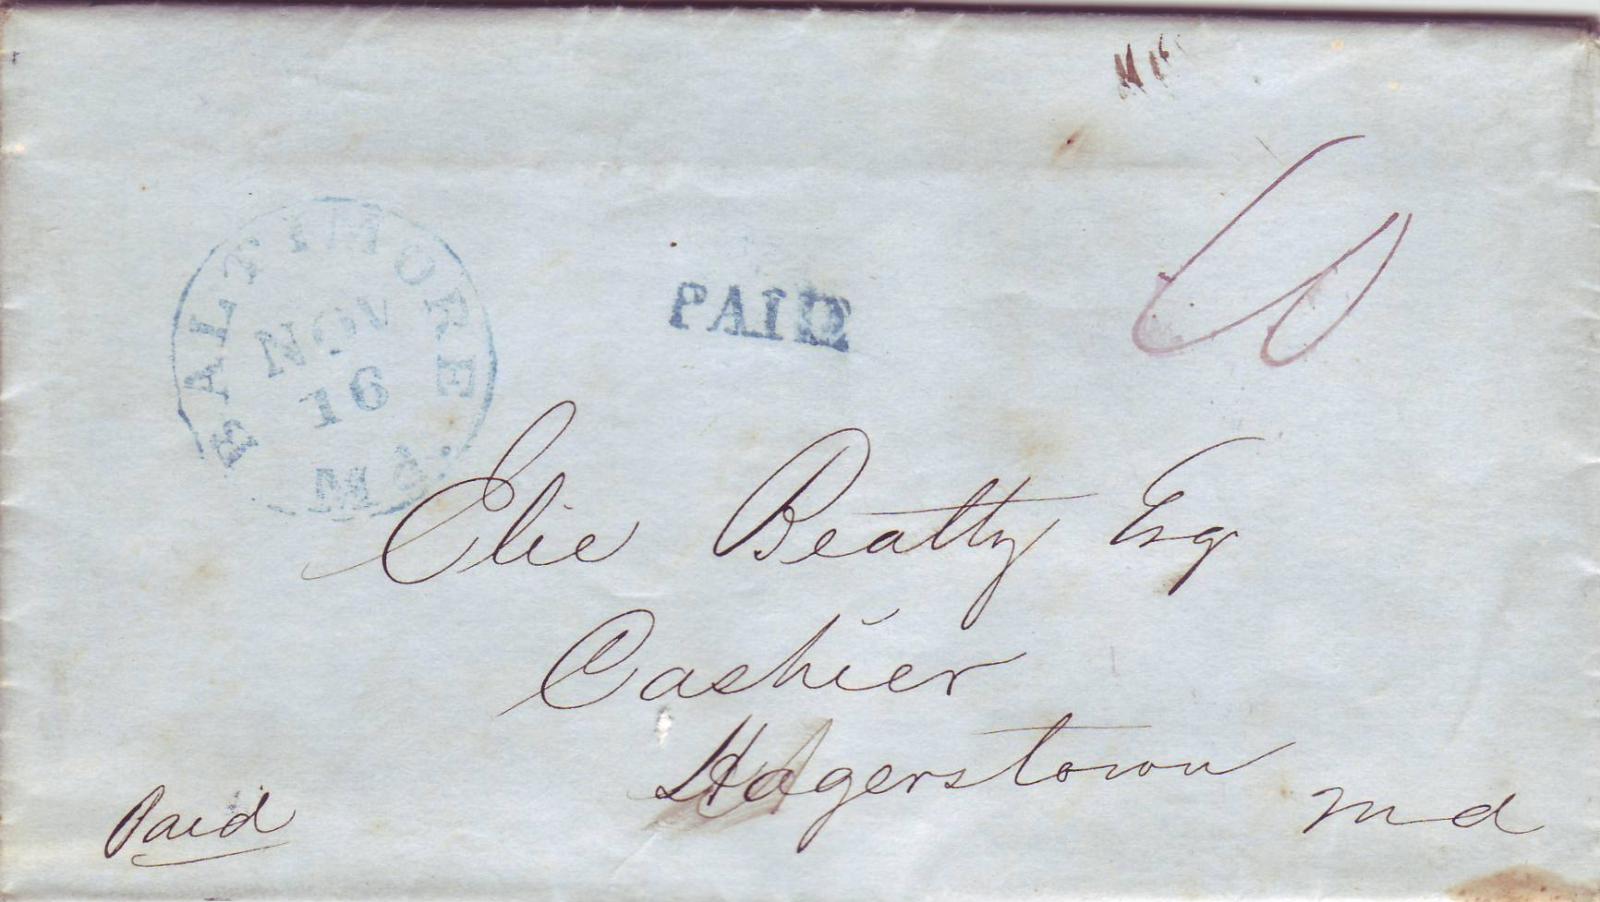 BALTIMORE
NOV
16
Md.
PAID
Elie Beatty Esq
Cashier
Hagerstown
Md
Paid